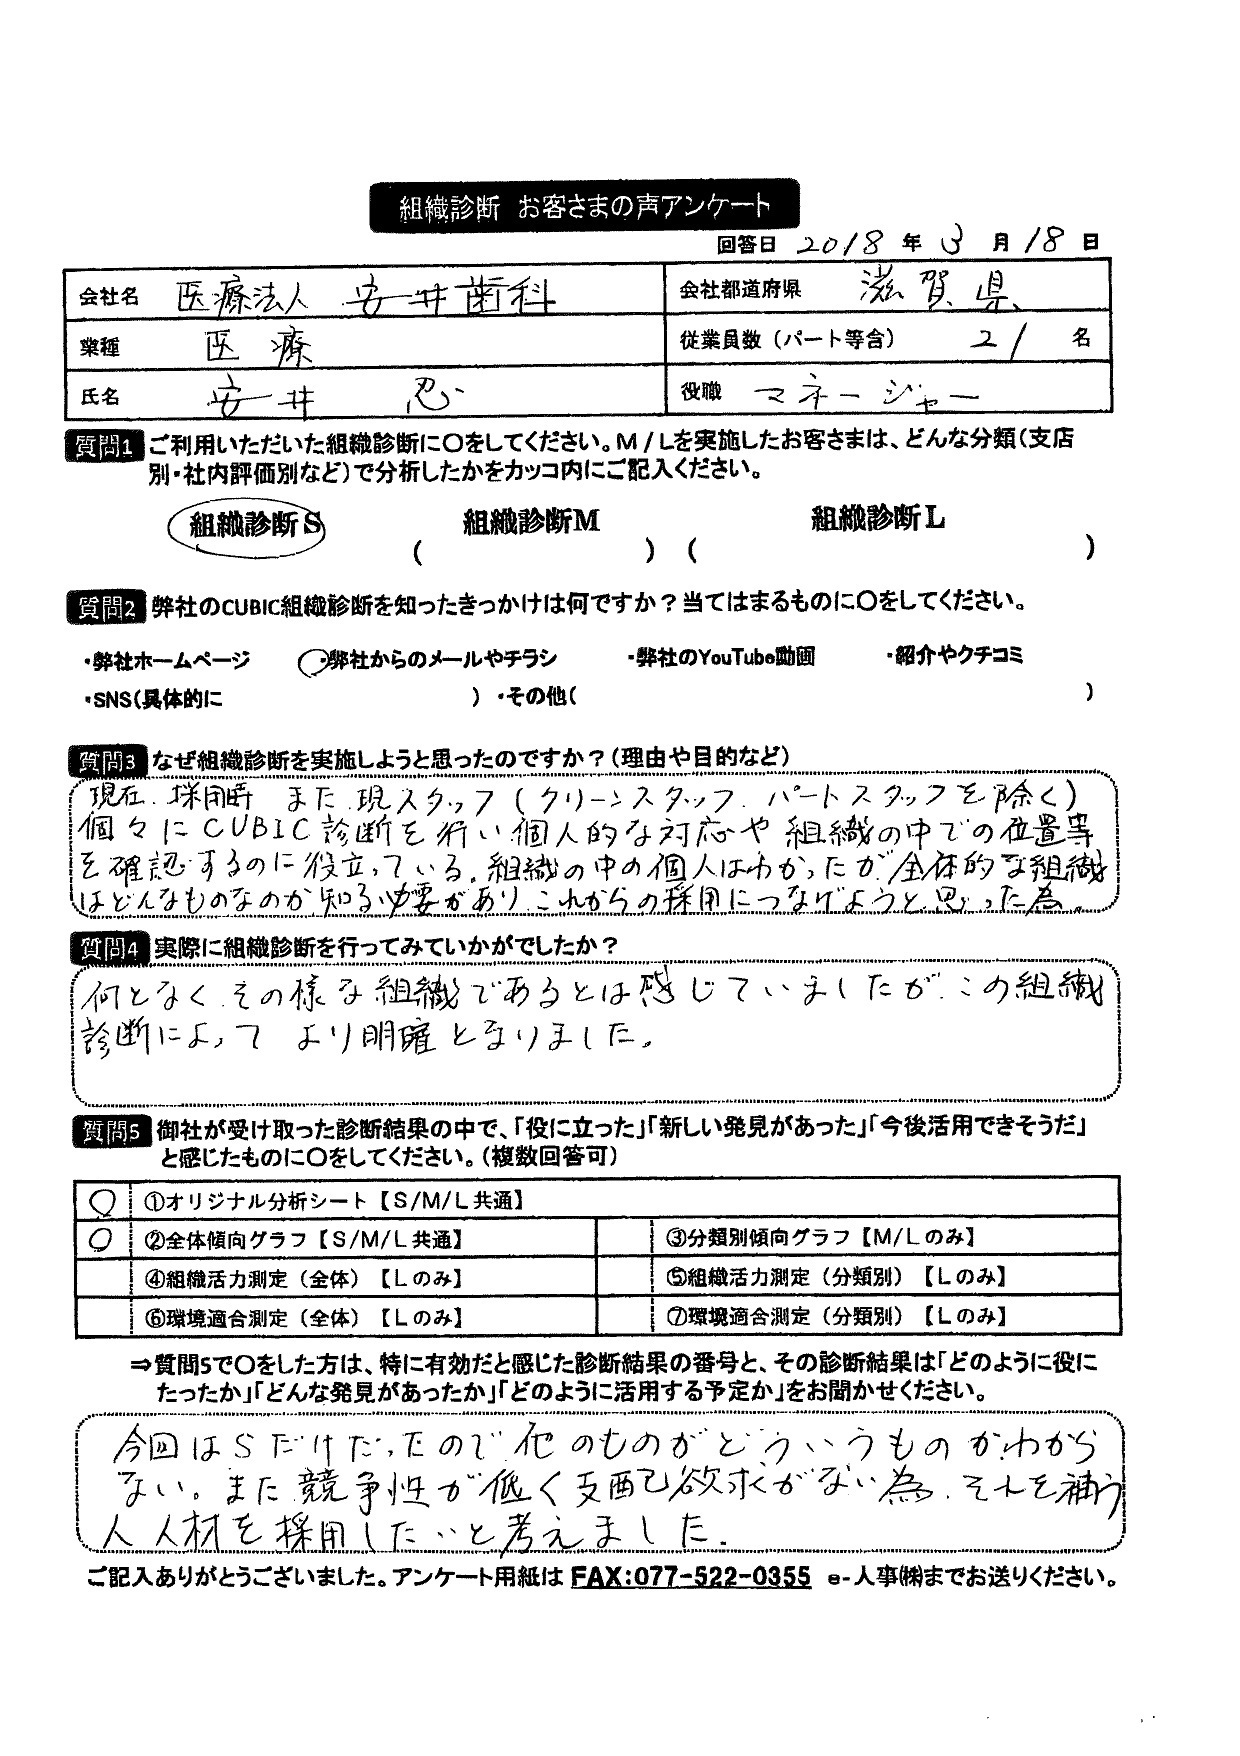 組織診断 お客さまの声アンケート
回答日 2018 年 3 月 18 日
会社名 医療法人 安井歯科 会社都道府県 滋賀県
業種 医療 従業員数（パート等含） 21 名
氏名 安井 忍 役職 マネージャー
質問1 ご利用いただいた組織診断に〇をしてください。M/Lを実施したお客さまは、どんな分類（支店
別・社内評価別など）で分析したかをカッコ内にご記入ください。
組織診断S 組織診断M 組織診断L
（ ） （ ）
質問2 弊社のCUBIC組織診断を知ったきっかけは何ですか？当てはまるものに〇をしてください。
・弊社ホームページ ・弊社からのメールやチラシ ・弊社のYouTube動画 ・紹介やクチコミ
・SNS（具体的に ） ・その他（ ）
質問3 なぜ組織診断を実施しようと思ったのですか？（理由や目的など）
現在、採用時 また 現スタッフ（クリーンスタッフ、パートスタッフを除く）
個々にCUBIC診断を行い個人的な対応や組織の中での位置等
を確認するのに役立っている。組織の中の個人はわかったが、全体的な組織
はどんなものなのか知る必要があり、これからの採用につなげようと思った為。
質問4 実際に組織診断を行ってみていかがでしたか？
何となく、その様な組織であるとは感じていましたが、この組織
診断によって より明確となりました。
質問5 御社が受け取った診断結果の中で、「役に立った」「新しい発見があった」「今後活用できそうだ」
と感じたものに〇をしてください。（複数回答可）
〇 ①オリジナル分析シート【S/M/L共通】
〇 ②全体傾向グラフ【S/M/L共通】 ③分類別傾向グラフ【M/Lのみ】
④組織活力測定（全体）【Lのみ】 ⑤組織活力測定（分類別）【Lのみ】
⑥環境適合測定（全体）【Lのみ】 ⑦環境適合測定（分類別）【Lのみ】
⇒質問5で〇をした方は、特に有効だと感じた診断結果の番号と、その診断結果は「どのように役に
たったか」「どんな発見があったか」「どのように活用する予定か」をお聞かせください。
今回はSだけだったので他のものがどういうものかわから
ない。また競争性が低く支配己欲求がない為、それを補う
人人材を採用したいと考えました。
ご記入ありがとうございました。アンケート用紙は FAX:077-522-0355 e-人事㈱までお送りください。